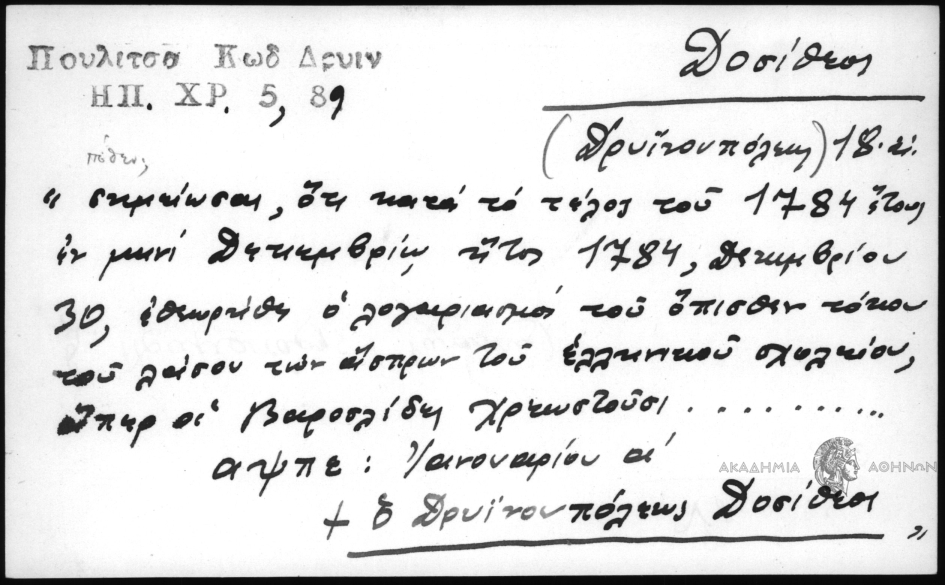 Πουλιτσα Κωδ Δρυιν
ΗΠ. ΧΡ. 5, 89
Δοσίθεος
(Δρυϊνουπόλεως) 18. αι.
πόθεν;
" σημείωσαι, ὅτι κατά τό τέλος τοῦ 1784 ἔτους
ἐν μηνί Δεκεμβρίῳ ἤτοι 1784, Δεκεμβρίου
30, ἐθεωρήθη ὁ λογαριασμός τοῦ ὄπισθεν τόκου
τοῦ λάσου τῶν ἄσπρων τοῦ ἑλληνικοῦ σχολείου,
ἅπερ οἱ Βαροσλίδες χρεωστοῦσι ..........
αψπε: Ἰανουαρίου α΄
+ ὁ Δρυϊνουπόλεως Δοσίθεος "
ΑΚΑΔΗΜΙΑ ΑΘΗΝΩΝ